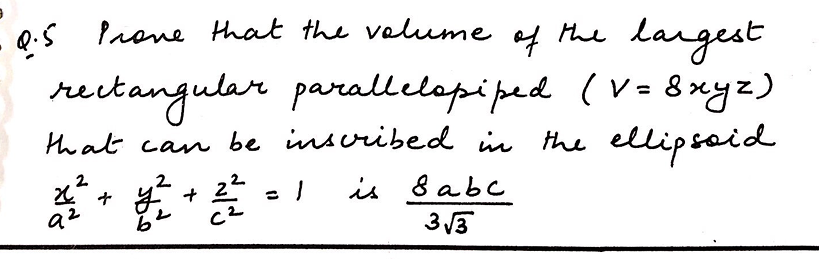 Q.5 Prove that the volume of the largest
rectangular parallelopiped ( V = 8xyz)
that can be inscribed in the ellipsoid
x²/a² + y²/b² + z²/c² = 1 is 8abc/3√3